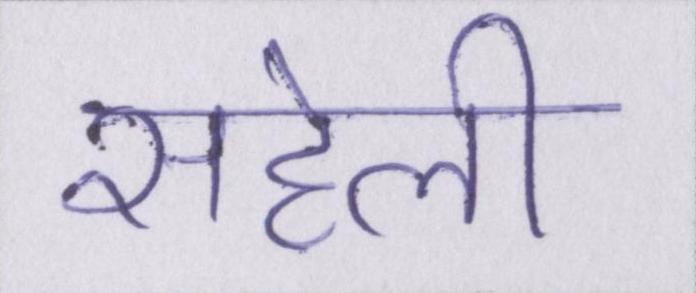 सहेली